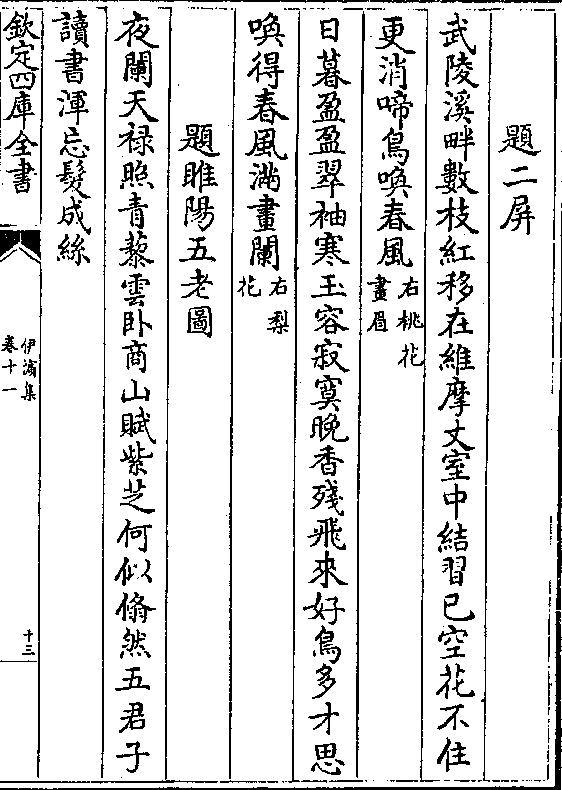 題二屏
武陵溪畔數枝紅移在維摩丈室中結習已空花不住
更消啼鳥喚春風右桃花
畫眉
日暮盈盈翠袖寒玉容寂寞晚香殘飛來好鳥多才思
喚得春風滿畫闌右梨
花
題睢陽五老圖
夜闌天禄照青藜雲卧商山賦紫芝何似翛然五君子
讀書渾忘髮成絲
欽定四庫全書
伊濱集
卷十一
十三